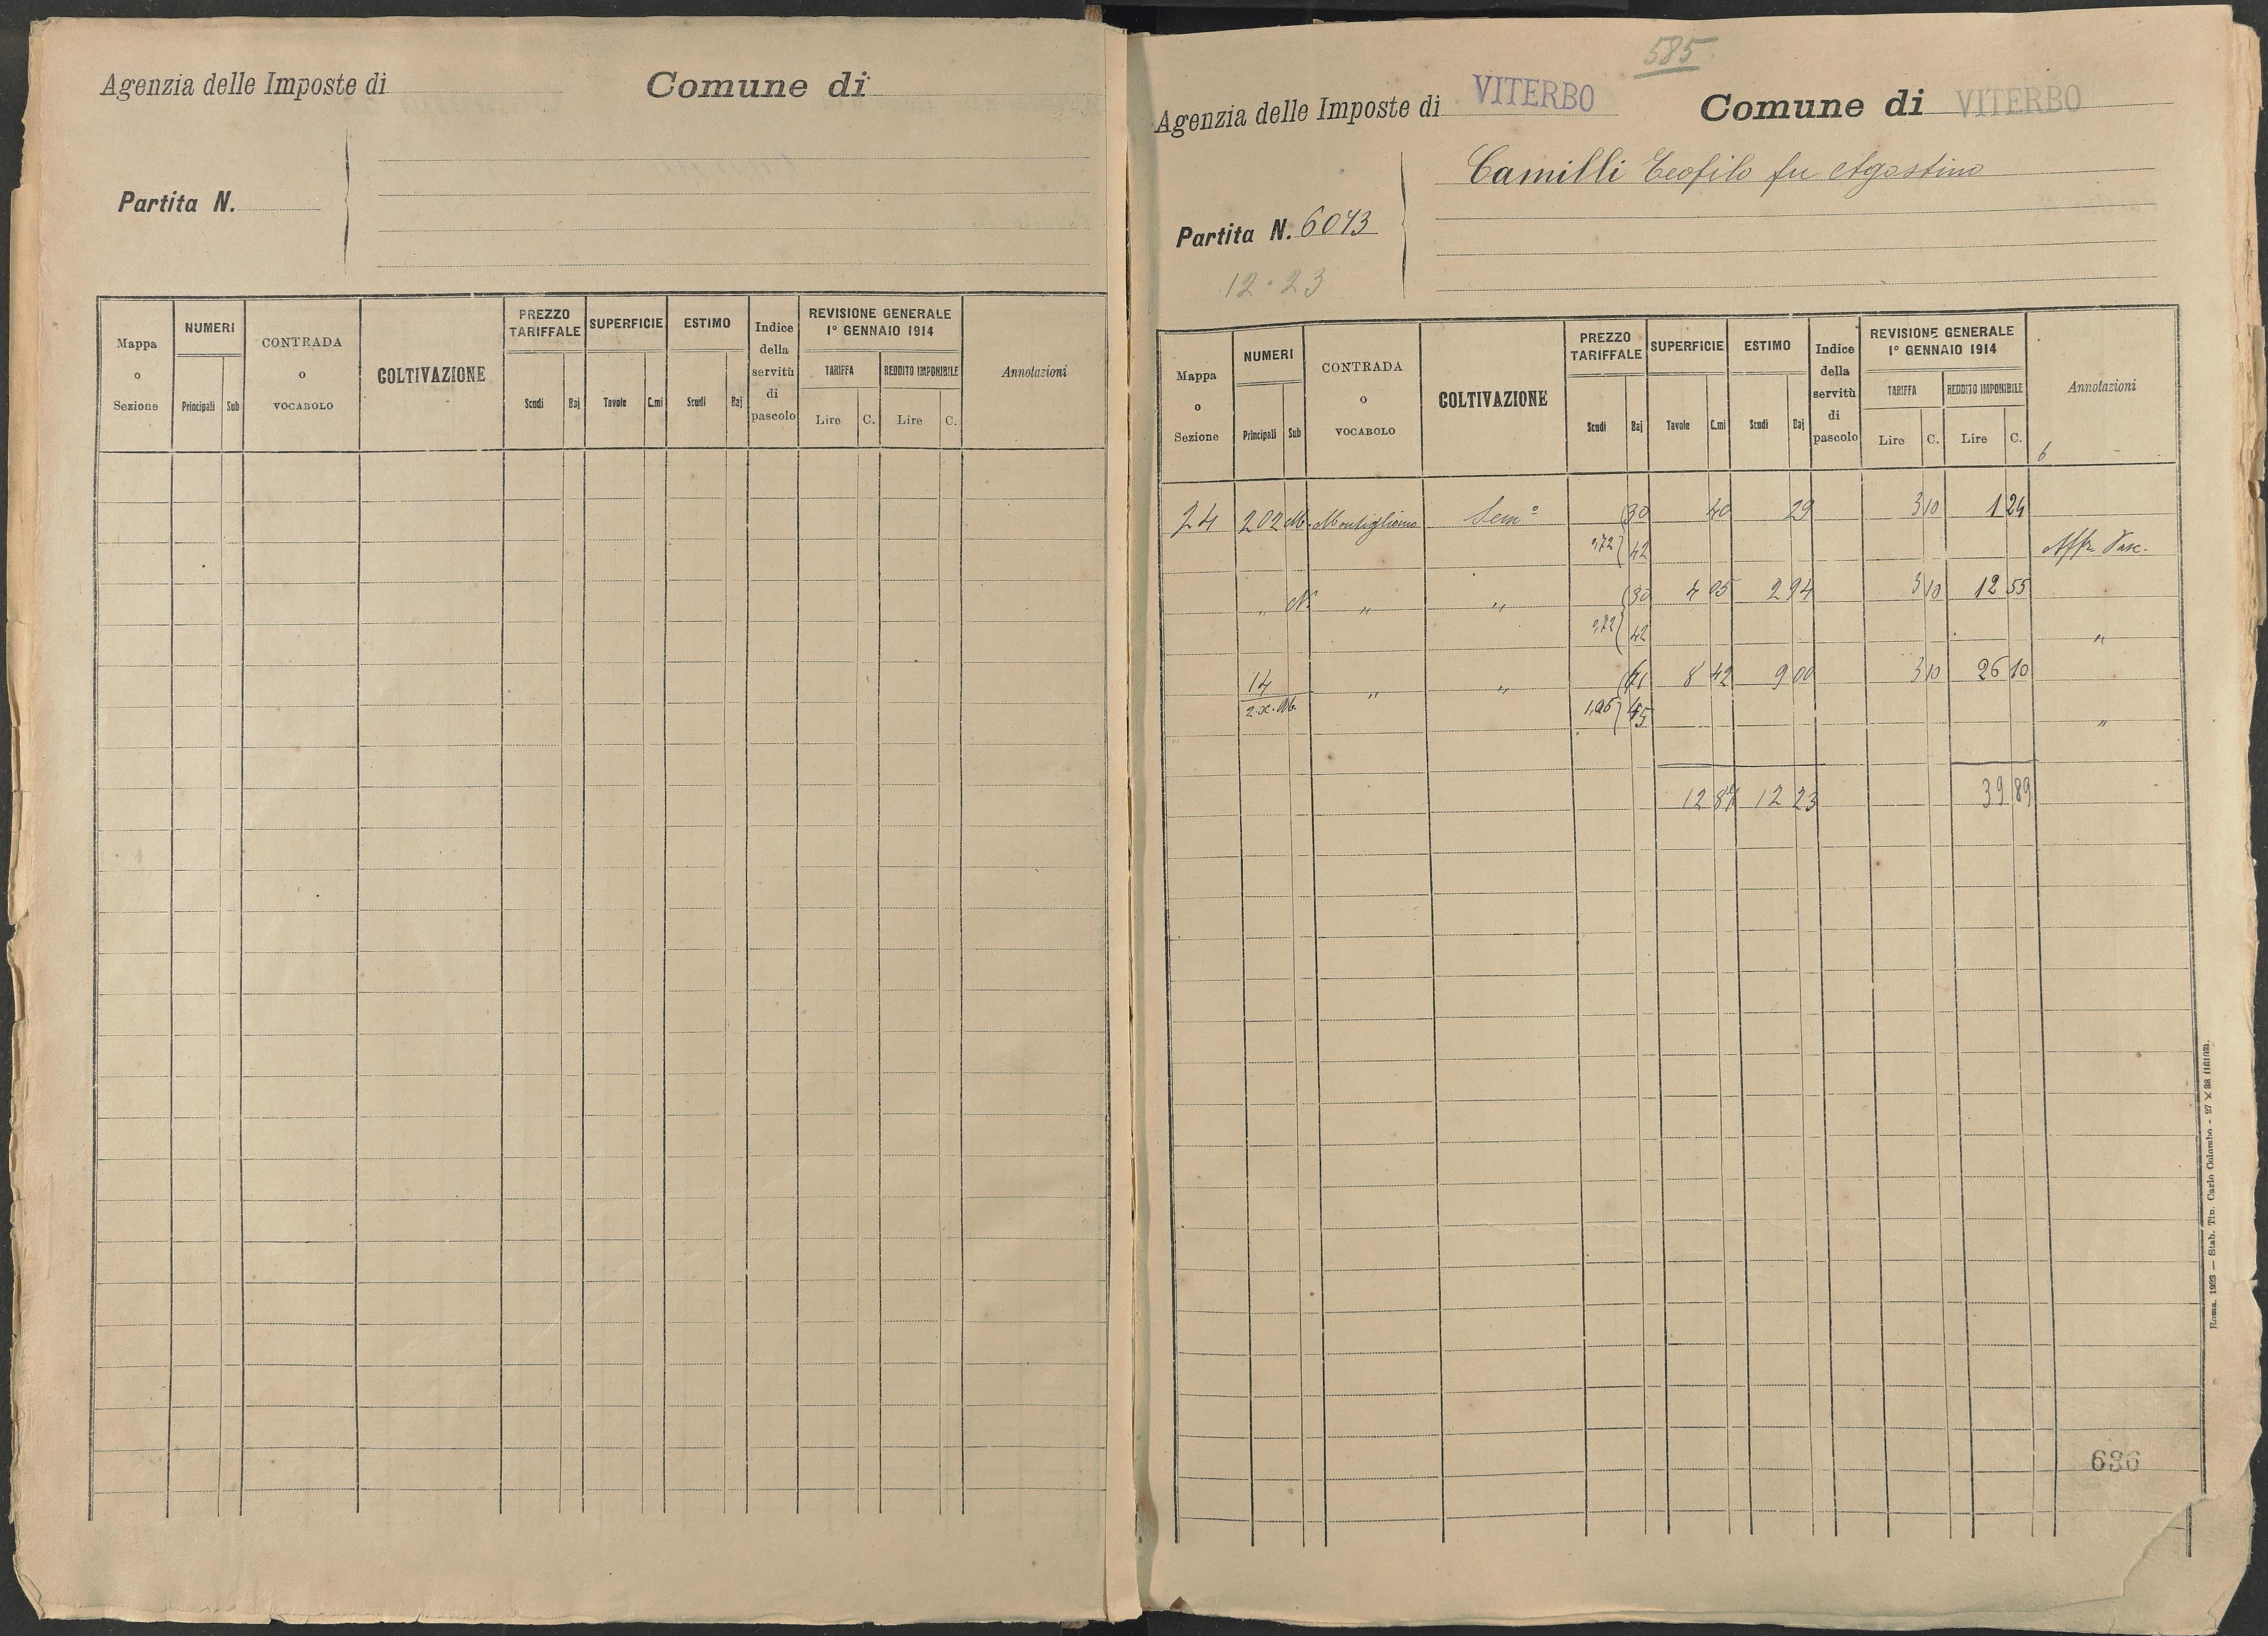 Agenzia delle Imposte di
Comune di
Partita N.
Mappa o Sezione
NUMERI
Principali Sub
CONTRADA o VOCABOLO
COLTIVAZIONE
PREZZO TARIFFALE
Scudi Baj
SUPERFICIE
Tavole C.mi
ESTIMO
Scudi Baj
Indice della servitù di pascolo
REVISIONE GENERALE
1º GENNAIO 1914
TARIFFA
Lire C.
REDDITO IMPONIBILE
Lire C.
Annotazioni
585
Agenzia delle Imposte di VITERBO
Comune di VITERBO
Camilli Teofilo fu Agostino
Partita N. 6043
12.23
Mappa o Sezione
NUMERI
Principali Sub
CONTRADA o VOCABOLO
COLTIVAZIONE
PREZZO TARIFFALE
Scudi Baj
SUPERFICIE
Tavole C.mi
ESTIMO
Scudi Baj
Indice della servitù di pascolo
REVISIONE GENERALE
1º GENNAIO 1914
TARIFFA
Lire C.
REDDITO IMPONIBILE
Lire C.
Annotazioni
6
24 202 M. Montigliano Semº 30 40 29 3 10 1 24
0,72 42 Affr. Pasc.
" N. " " 30 4 05 2 94 3 10 12 55
0,72 42 "
14 " " 61 8 42 9 00 3 10 26 10
2.x.Ab. 1,06 45 "
12 87 12 23 39 89
636
Roma, 1923 — Stab. Tip. Carlo Colombo - 27 X 23 (16109).